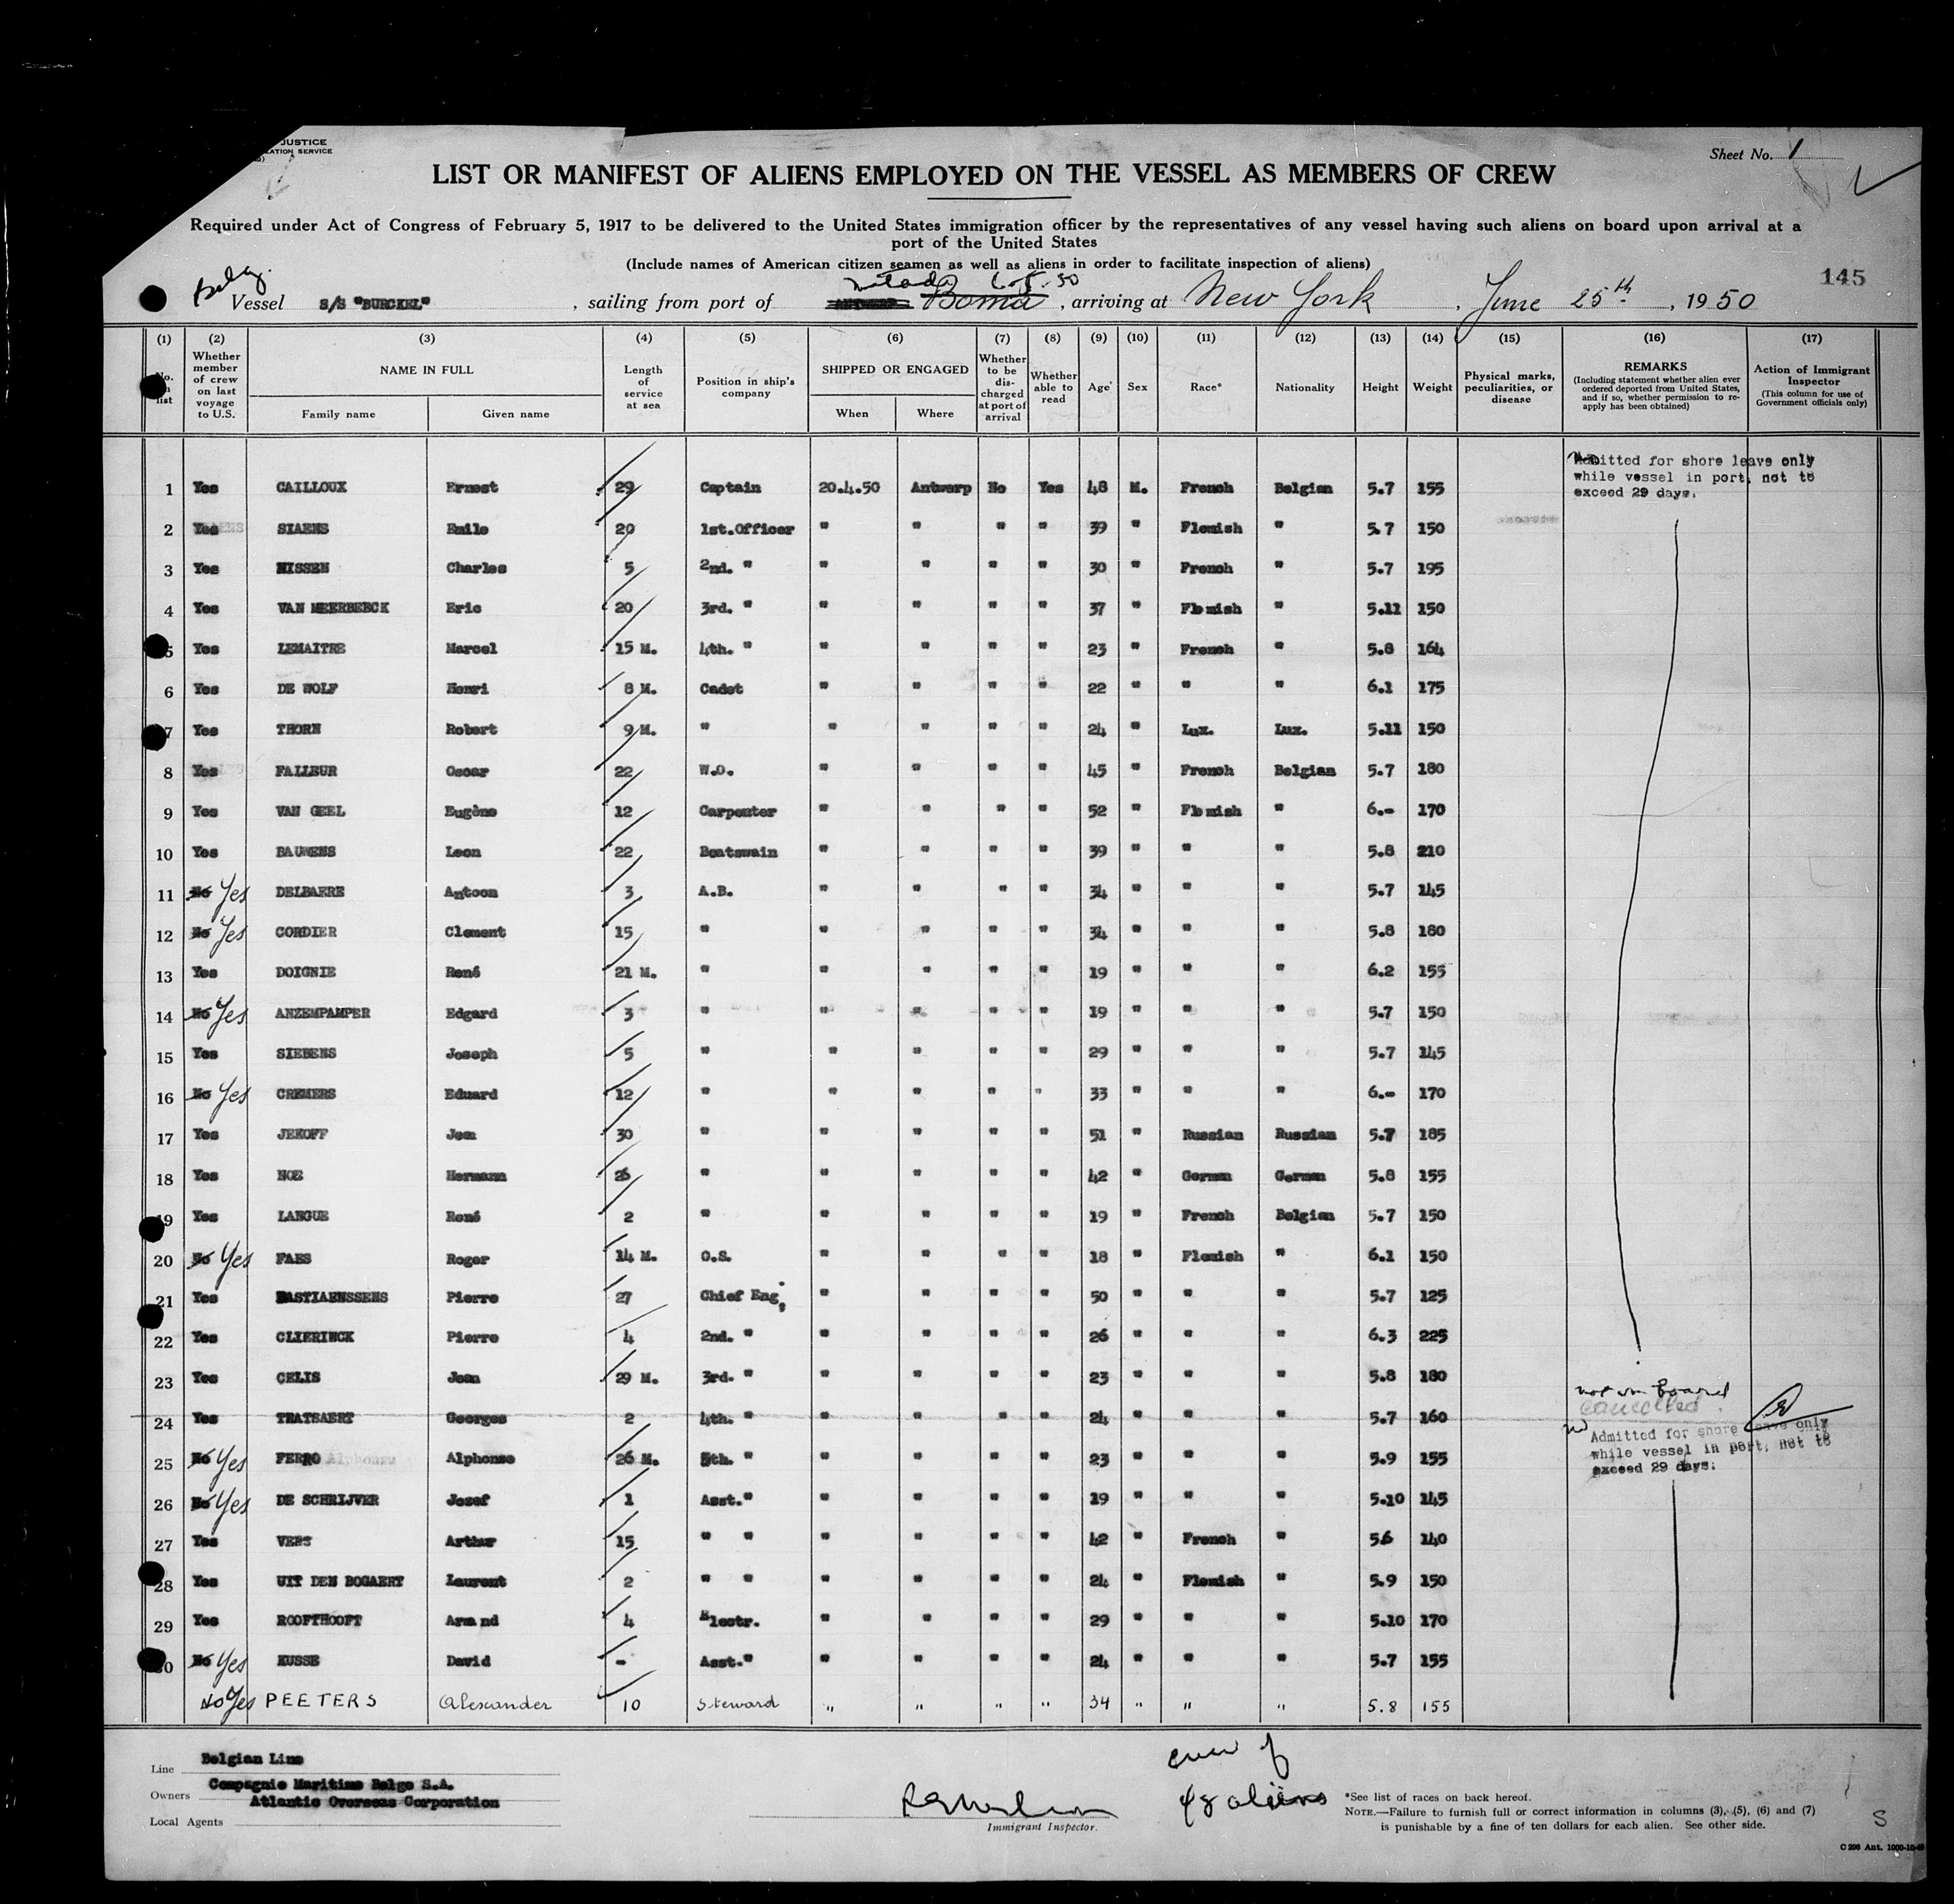 JUSTICE
ATION SERVICE
Sheet No. 1
LIST OR MANIFEST OF ALIENS EMPLOYED ON THE VESSEL AS MEMBERS OF CREW
Required under Act of Congress of February 5, 1917 to be delivered to the United States immigration officer by the representatives of any vessel having such aliens on board upon arrival at a
port of the United States
(Include names of American citizen seamen as well as aliens in order to facilitate inspection of aliens)
145
Belg. Matadi 6-5-50
Vessel S/S "BURCKEL" , sailing from port of ANTWERP Boma , arriving at New York , June 25th , 1950
(1) (2) (3) (4) (5) (6) (7) (8) (9) (10) (11) (12) (13) (14) (15) (16) (17)
No. on list Whether member of crew on last voyage to U.S. NAME IN FULL Family name Given name Length of service at sea Position in ship's company SHIPPED OR ENGAGED When Where Whether to be discharged at port of arrival Whether able to read Age Sex Race* Nationality Height Weight Physical marks, peculiarities, or disease REMARKS (Including statement whether alien ever ordered deported from United States, and if so, whether permission to re-apply has been obtained) Action of Immigrant Inspector (This column for use of Government officials only)
Admitted for shore leave only
while vessel in port, not to
exceed 29 days.
1 Yes CAILLOUX Ernest 29 Captain 20.4.50 Antwerp No Yes 48 M. French Belgian 5.7 155
2 Yes SIAENS Emile 20 1st.Officer " " " " 39 " Flemish " 5.7 150
3 Yes NISSEN Charles 5 2nd. " " " " " 30 " French " 5.7 195
4 Yes VAN MEERBEECK Eric 20 3rd. " " " " " 37 " Flemish " 5.11 150
5 Yes LEMAITRE Marcel 15 M. 4th. " " " " " 23 " French " 5.8 164
6 Yes DE WOLF Henri 8 M. Cadet " " " " 22 " " " 6.1 175
7 Yes THORN Robert 9 M. " " " " " 24 " Lux. Lux. 5.11 150
8 Yes FALLEUR Oscar 22 W.O. " " " " 45 " French Belgian 5.7 180
9 Yes VAN GEEL Eugène 12 Carpenter " " " " 52 " Flemish " 6.- 170
10 Yes BAUWENS Leon 22 Boatswain " " " " 39 " " " 5.8 210
11 No Yes DELBAERE Antoon 3 A.B. " " " " 34 " " " 5.7 145
12 No Yes CORDIER Clement 15 " " " " " 34 " " " 5.8 180
13 Yes DOIGNIE René 21 M. " " " " " 19 " " " 6.2 155
14 No Yes ANZEMPAMPER Edgard 3 " " " " " 19 " " " 5.7 150
15 Yes SIEBENS Joseph 5 " " " " " 29 " " " 5.7 145
16 No Yes CREMERS Eduard 12 " " " " " 33 " " " 6.- 170
17 Yes JEKOFF Jem 30 " " " " " 51 " Russian Russian 5.7 185
18 Yes NOE Hermann 26 " " " " " 42 " German German 5.8 155
19 Yes LANGUE René 2 " " " " " 19 " French Belgian 5.7 150
20 No Yes FAES Roger 14 M. O.S. " " " " 18 " Flemish " 6.1 150
21 Yes BASTIAENSSENS Pierre 27 Chief Eng. " " " " 50 " " " 5.7 125
22 Yes CLIERINCK Pierre 4 2nd. " " " " " 26 " " " 6.3 225
23 Yes CELIS Jean 29 M. 3rd. " " " " " 23 " " " 5.8 180
not on board
24 Yes TRATSAERT Georges 2 4th. " " " " " 24 " " " 5.7 160 cancelled.
Admitted for shore leave only
while vessel in port, not to
exceed 29 days.
25 No Yes FERRO Alphonse 26 M. 5th. " " " " " 23 " " " 5.9 155
26 No Yes DE SCHRIJVER Jozef 1 Asst." " " " " 19 " " " 5.10 145
27 Yes VERS Arthur 15 " " " " " " 42 " French " 5.6 140
28 Yes UIT DEN BOGAERT Laurent 2 " " " " " " 24 " Flemish " 5.9 150
29 Yes ROOFTHOOFT Armand 4 Electr. " " " " 29 " " " 5.10 170
30 No Yes KUSSE David - Asst." " " " " 24 " " " 5.7 155
No Yes PEETERS Alexander 10 Steward " " " " 34 " " " 5.8 155
Line Belgian Line
Owners Compagnie Maritime Belge S.A.
Atlantic Overseas Corporation
Local Agents
Immigrant Inspector.
crew of
48 aliens
*See list of races on back hereof.
NOTE.—Failure to furnish full or correct information in columns (3), (5), (6) and (7)
is punishable by a fine of ten dollars for each alien. See other side.
S